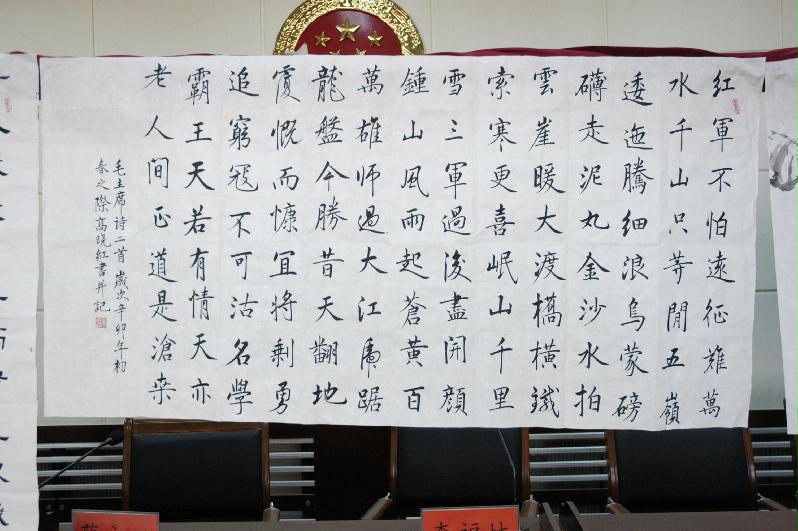 紅軍不怕遠征難萬
水千山只等閒五嶺
逶迤騰細浪烏蒙磅
礴走泥丸金沙水拍
雲崖暖大渡橋橫鐵
索寒更喜岷山千里
雪三軍過後盡開顏
鍾山風雨起蒼黃百
萬雄師過大江虎踞
龍盤今勝昔天翻地
覆慨而慷宜將剩勇
追窮寇不可沽名學
霸王天若有情天亦
老人間正道是滄桑
毛主席诗二首歲次辛卯年初
春之際高晓紅書并記